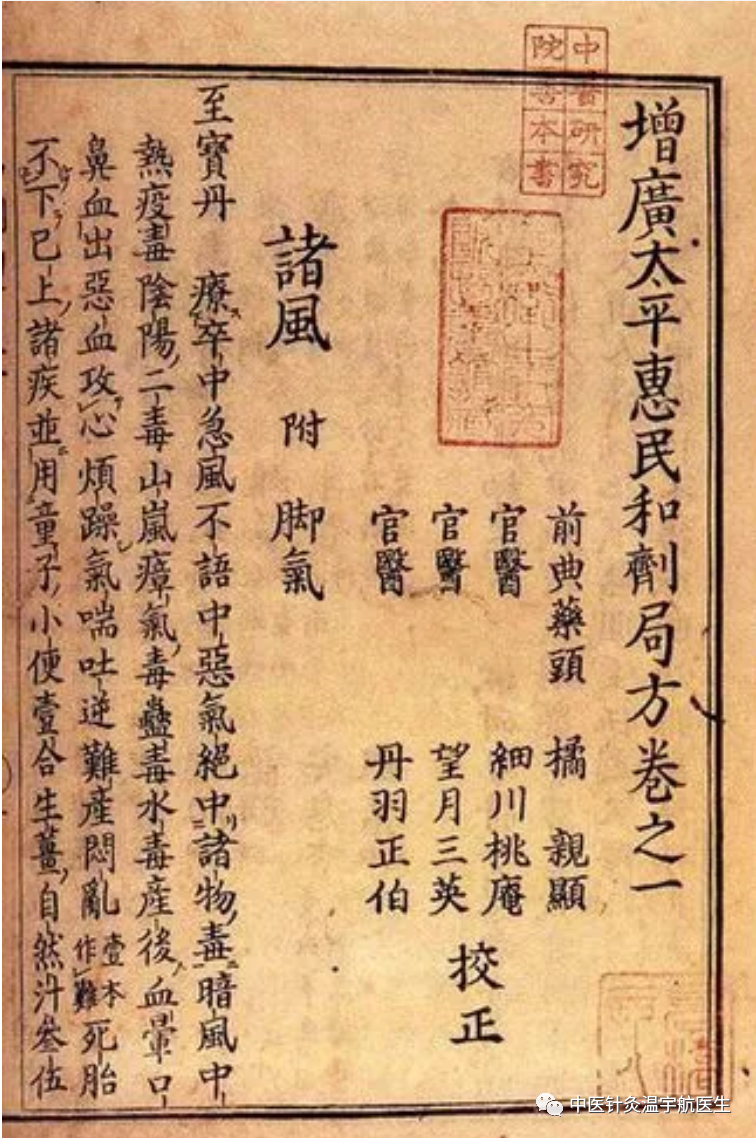 增廣太平惠民和劑局方卷之一
前典藥頭 橘 親顯
官醫 細川桃庵
官醫 望月三英
官醫 丹羽正伯
挍正
諸風 附 脚氣
至寶丹 療卒中急風不語中惡氣絶中諸物毒暗風中
熱疫毒陰陽二毒山嵐瘴氣毒蠱毒水毒產後血暈口
鼻血出惡血攻心煩躁氣喘吐逆難產悶亂壹本作難死胎
不下已上諸疾並用童子小便壹合生薑自然汁叄伍
中醫研究
院善本書
中医针灸温宇航医生